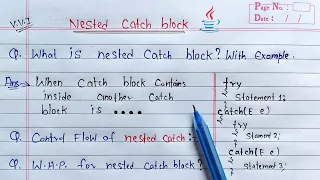 V.V.I
Nested Catch block
Page No. :
Date : / /
Q. What is nested Catch block? With Example.
Ans→ When Catch block Contains
inside another Catch
block is ....
Q. Control Flow of nested catch :-
Q. W.A.P. for nested Catch block?
try
{
Statement 1;
}
catch(E e)
{
try
{
Stament 2;
}
catch(E e)
{
Statement 3;